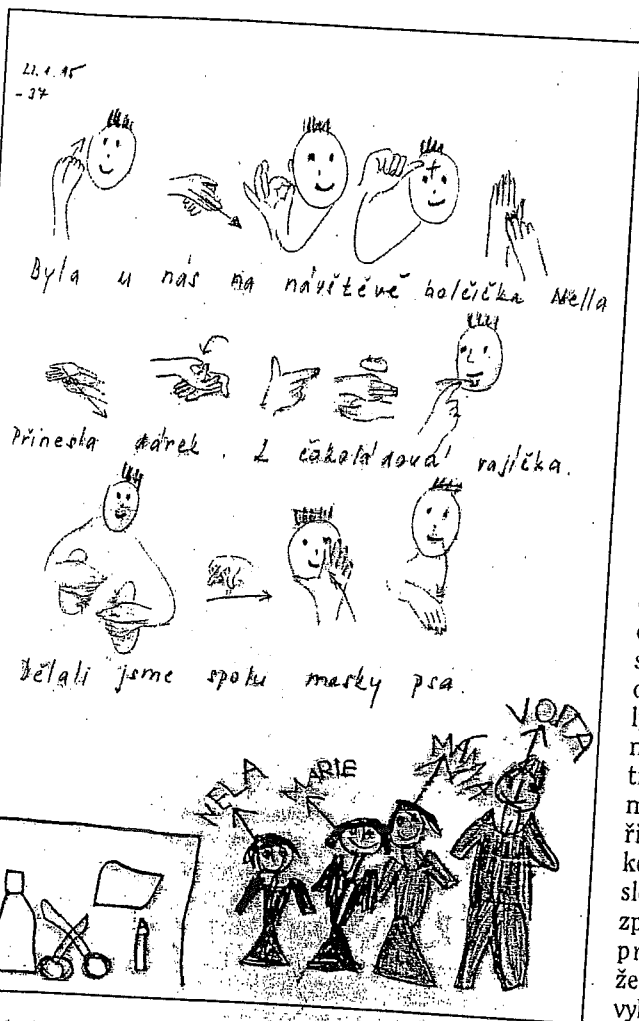 21.1.95
-37
Byla u nás na návštěvě holčička Nella
Přinesla dárek. 2 čokoládová vajíčka.
Dělali jsme spolu masky psa.
NELA
MARIE
VOJTA
s
m
ři
ke
sl
zp
pr
že
vyl